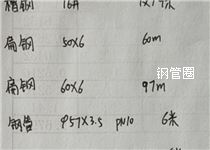 槽钢 16# 1×7米
扁钢 50×6 60m
扁钢 60×6 97m
钢管 φ57×3.5 PN10 6米
钢管圈